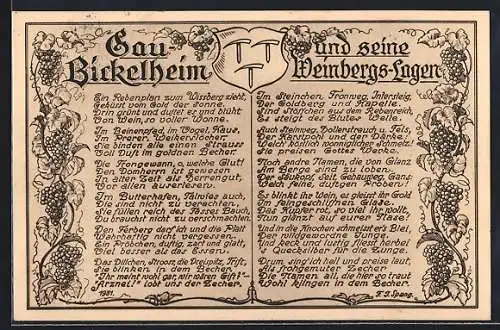 Gau-
Bickelheim
und seine
Weinbergs-Lagen
Ein Rebenplan zum Wissberg zieht,
gebüsst vom Gold der Sonne.
Drin grünt und duftet es und blüht
Von Wein, so voller Wonne.
Im Beinenpfad, im Vogel, Kaus,
Im Kreuz, Weikerslöcher
Sie binden alle einen Strauss
Voll Duft im goldnen Becher.
Die Frongewann, o, welche Glut!
Den Domherrn ist geniessen
In alter Zeit als Herrengut,
Vor allen auserlesen.
Im Butterhafen, Painles auch,
Die sind nicht zu verachten,
Sie füllen reich des Fasses Bauch,
Du brauchst nicht zu verschmachten.
Den Färberg darf ich und die Platt
Wahrhaftig nicht vergessen.
Ein Pröbchen, duftig, zart und glatt,
Viel besser als das Essen.
Das Dillchen, Stroos, die Dreispitz, Trift,
Sie blinken in dem Becher.
"Ihr meint wohl gar, wir tränen Gift?"-
"Arznei!" lobt uns der Zecher.
1931.
Im Steinchen, Fronweg, Intersteig,
Der Goldberg und Kapelle.
Sind Stöffchen aus dem Rebenreich,
Es steigt des Blutes Welle.
Auch Steinweg, Dollerstrauch u. Fels,
Der Karstpohl und der Decke:
Welch köstlich wonniglicher Schmelz!
Sie preisen Gotes Werke.
Noch andre Namen, die von Glanz
Am Berge sind zu loben:
Der Säukopf, Selt, Gehauberg, Gans:
Welch feine, duftgen Proben!
Es blinkt ihr Wein, es gleist ihr Gold
Im feingeschliffnen Glase.
Das Kupfer rot, so viel ihr wollt,
Nun glänzt auf eurer Nase.
Und in die Knochen schmeisst's Blei,
Der wildgewordne Junge.
Und keck und lustig fliesst herbei
's Quecksilber für die Zunge.
Drum, sing ich hell und preise laut,
Als frohgemuter Zecher
Die Namen all, die hier so traut
Wohl klingen in dem Becher.
F. J. Spang.